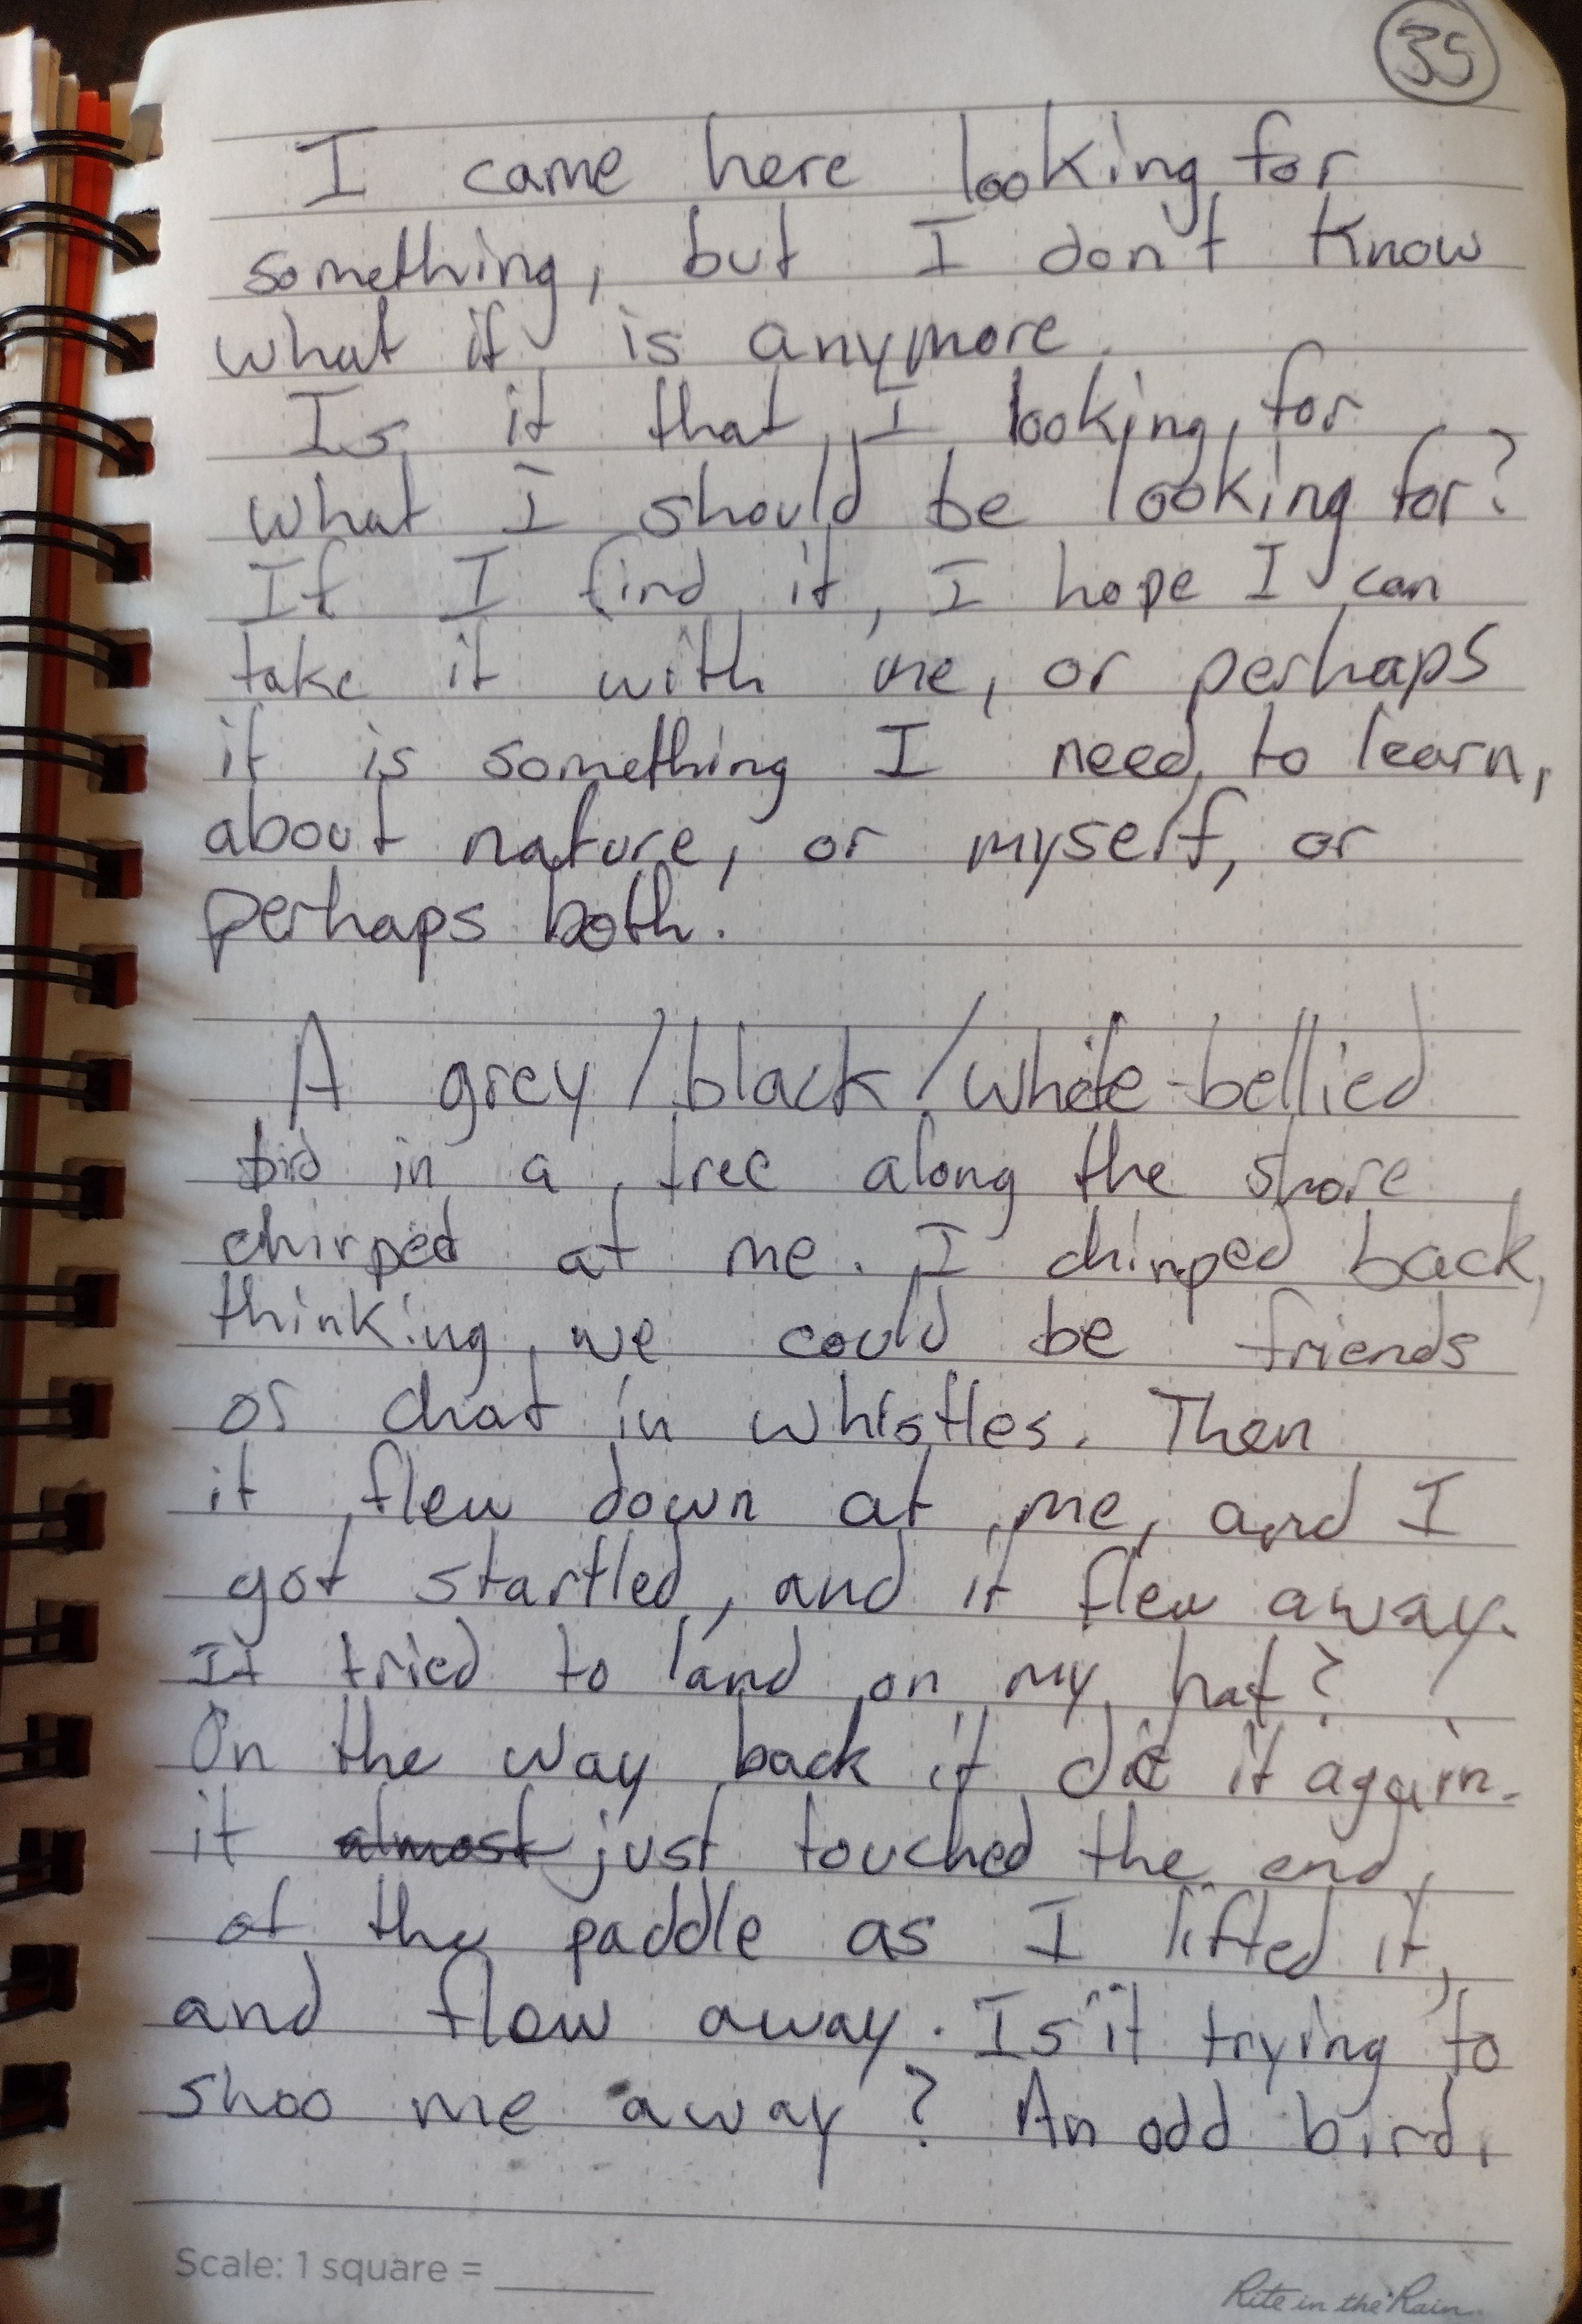 35
I came here looking for
something, but I don't know
what it is anymore.
Is it that I looking for
what I should be looking for?
If I find it, I hope I can
take it with me, or perhaps
it is something I need to learn,
about nature, or myself, or
perhaps both.
A grey/black/white-bellied
bird in a tree along the shore
chirped at me. I chirped back,
thinking we could be friends
or chat in whistles. Then
it flew down at me, and I
got startled, and it flew away.
It tried to land on my hat?
On the way back it did it again.
it almost just touched the end
of the paddle as I lifted it,
and flew away. Is it trying to
shoo me away? An odd bird.
Scale: 1 square = ______
Rite in the Rain